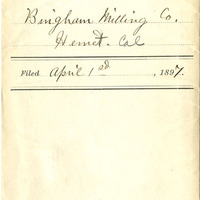 Bingham Milling Co.
Hemet. Cal
Filed April 1st, 1897.